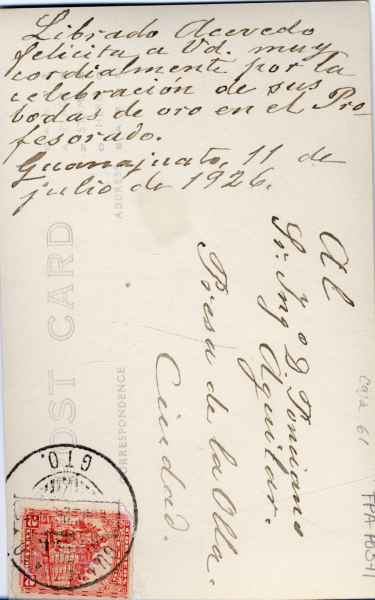 Librado Acevedo
felicita a Vd. muy
cordialmente por la
celebración de sus
bodas de oro en el Pro-
fesorado.
Guanajuato, 11 de
julio de 1926.
Al
Sr. Ingo. D. Ponciano
Aguilar.
Presa de la Olla.
Ciudad.
POST CARD
CORRESPONDENCE
ADDRESS
GTO.
Caja 61